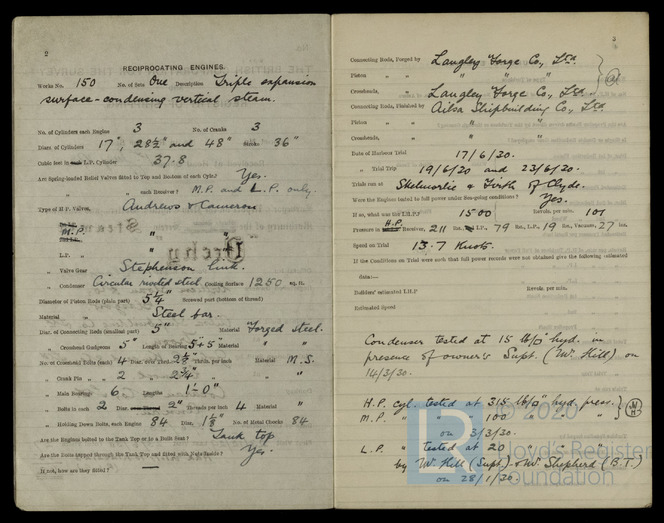 2
RECIPROCATING ENGINES.
Works No. 150 No. of Sets One Description Triple expansion
surface-condensing vertical steam.
No. of Cylinders each Engine 3 No. of Cranks 3
Diars. of Cylinders 17", 28½" and 48" Stroke 36"
Cubic feet in each L.P. Cylinder 37.8
Are Spring-loaded Relief Valves fitted to Top and Bottom of each Cylr.? Yes.
" " each Receiver? M.P. and L.P. only.
Type of H.P. Valves, Andrews & Cameron
M.P. " "
L.P. " "
" Valve Gear Stephenson link.
" Condenser Circular riveted steel Cooling Surface 1250 sq. ft.
Diameter of Piston Rods (plain part) 5¼" Screwed part (bottom of thread)
Material " Steel bar.
Diar. of Connecting Rods (smallest part) 5" Material Forged steel.
" Crosshead Gudgeons 5" Length of Bearing 5"+5" Material " "
No. of Crosshead Bolts (each) 4 Diar. over Thrd. 2½" Thrds. per inch Material M.S.
" Crank Pin " " 2 " 2¾" " "
" Main Bearings 6 Lengths 1'-0"
" Bolts in each 2 Diar. 2" Threads per inch 4 Material "
" Holding Down Bolts, each Engine 84 Diar. 1⅛" No. of Metal Chocks 84
Are the Engines bolted to the Tank Top or to a Built Seat? Tank top
Are the Bolts tapped through the Tank Top and fitted with Nuts Inside? Yes.
If not, how are they fitted?
3
Connecting Rods, Forged by Langley Forge Co., Ltd.
Piston " " " " "
Crossheads, " Langley Forge Co., Ltd.
Connecting Rods, Finished by Ailsa Shipbuilding Co., Ltd.
Piston " " " "
Crossheads, " " "
Date of Harbour Trial 17/6/30.
" Trial Trip 19/6/30 and 23/6/30.
Trials run at Skelmorlie & Firth of Clyde.
Were the Engines tested to full power under Sea-going conditions? Yes.
If so, what was the I.H.P.? 1500 Revols. per min. 101
Pressure in H.P. Receiver, 211 lbs., L.P., 79 lbs., L.P., 19 lbs., Vacuum, 27 ins.
Speed on Trial 13.7 Knots.
If the Conditions on Trial were such that full power records were not obtained give the following estimated
data:—
Builders' estimated I.H.P. Revols. per min.
Estimated Speed
Condenser tested at 15 lb/□" hyd. in
presence of owner's Supt. (Mr. Hill) on
14/3/30.
H.P. cyl. tested at 315 lb/□" hyd. press.
M.P. " " " 100 " " "
on 3/3/30.
L.P. " tested at 20 " " "
by Mr. Hill (Supt.) & Mr. Shepherd (B.T.)
on 28/1/30.
LR © 2020
Lloyd's Register
Foundation